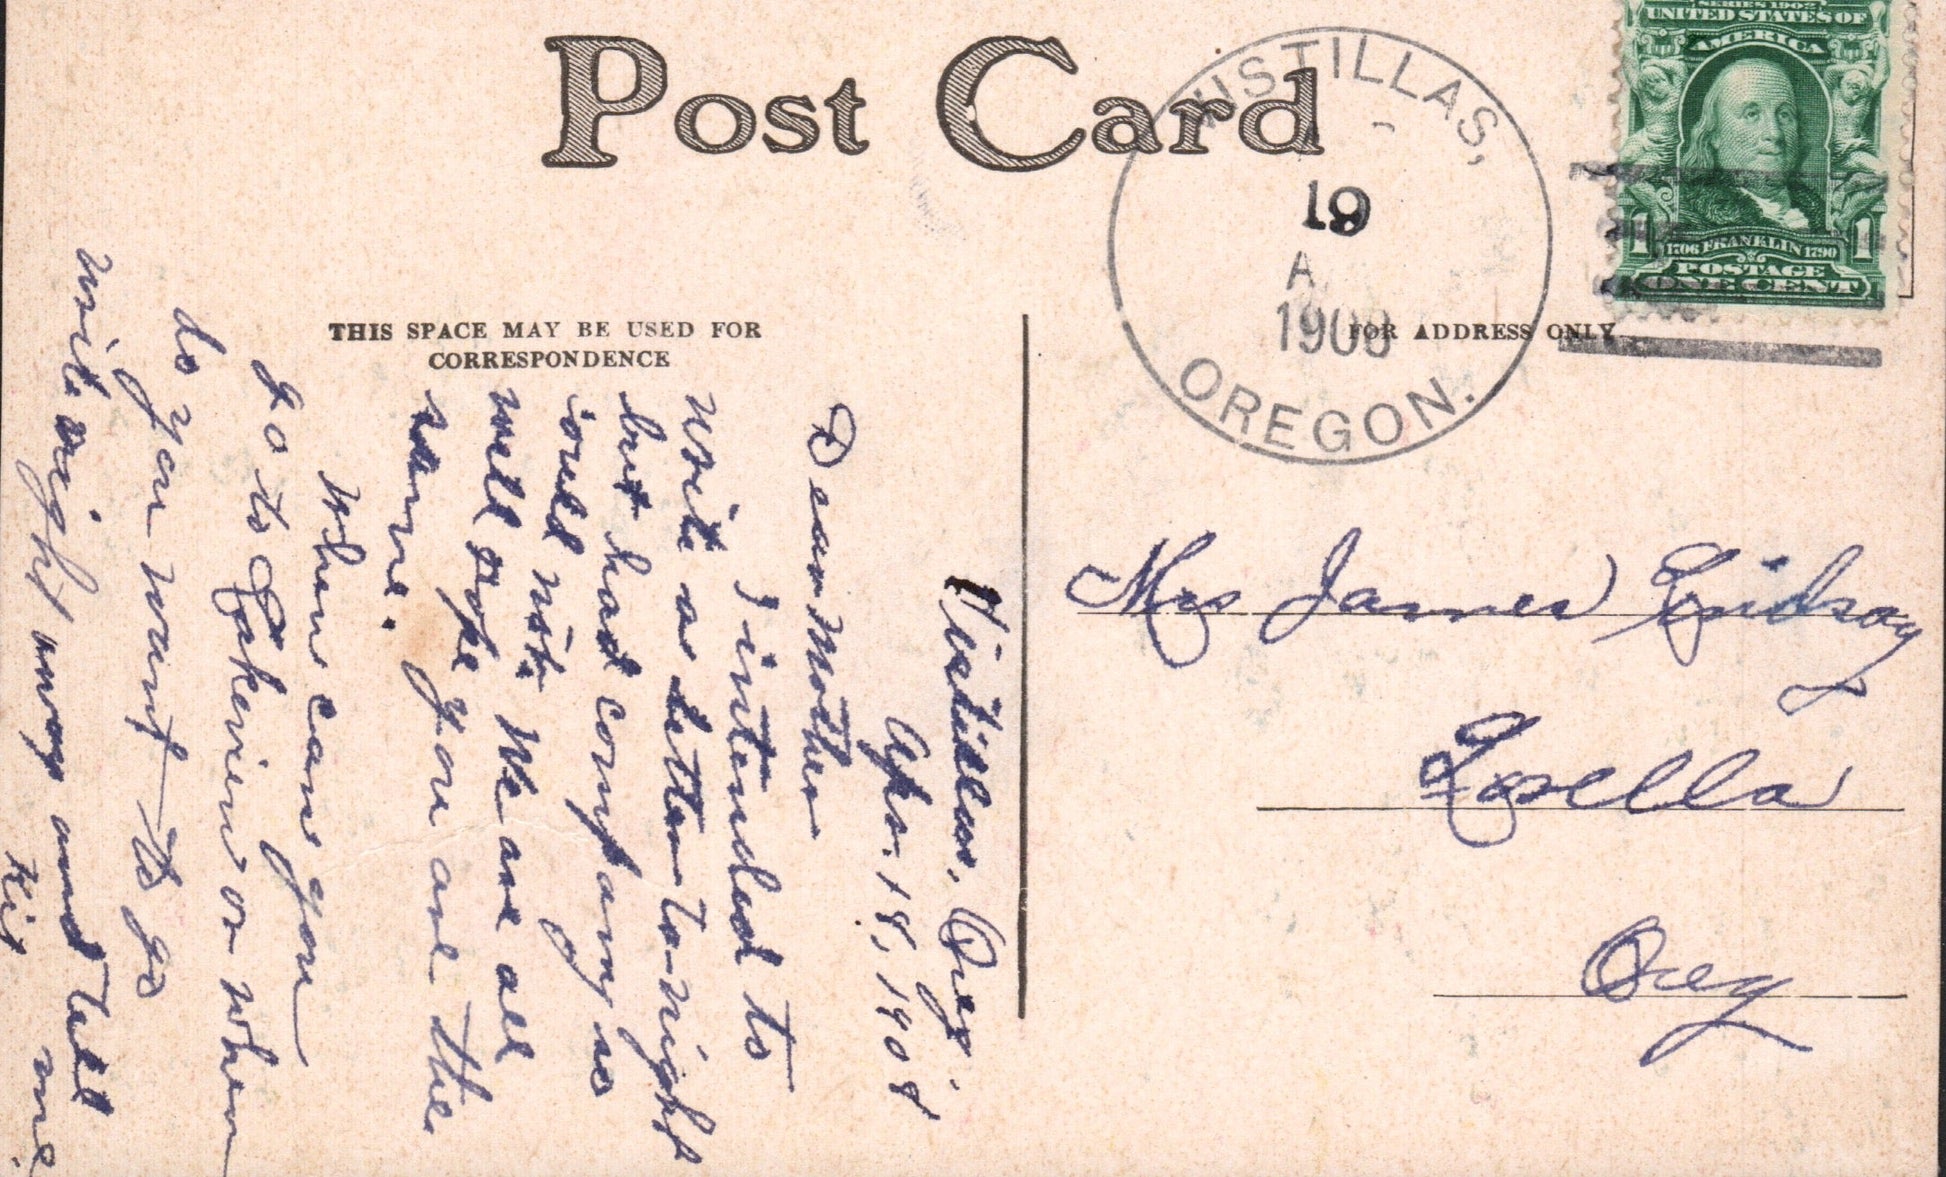 Post Card
WISTILLAS,
19
A.
1908
OREGON.
SERIES 1902
UNITED STATES OF
AMERICA
1 1
1706 FRANKLIN 1790
POSTAGE
ONE CENT
THIS SPACE MAY BE USED FOR
CORRESPONDENCE
FOR ADDRESS ONLY
Mrs James Lindsay
Loella
Oreg
Wistillas, Oreg.
Apr. 18, 1908
Dear Mother
I intended to
write a letter to-night
but had company so
could not. We are all
well hope you are the
same.
When can you
go to Lakeview or when
do you want to go
write right away and tell
me.
Kit